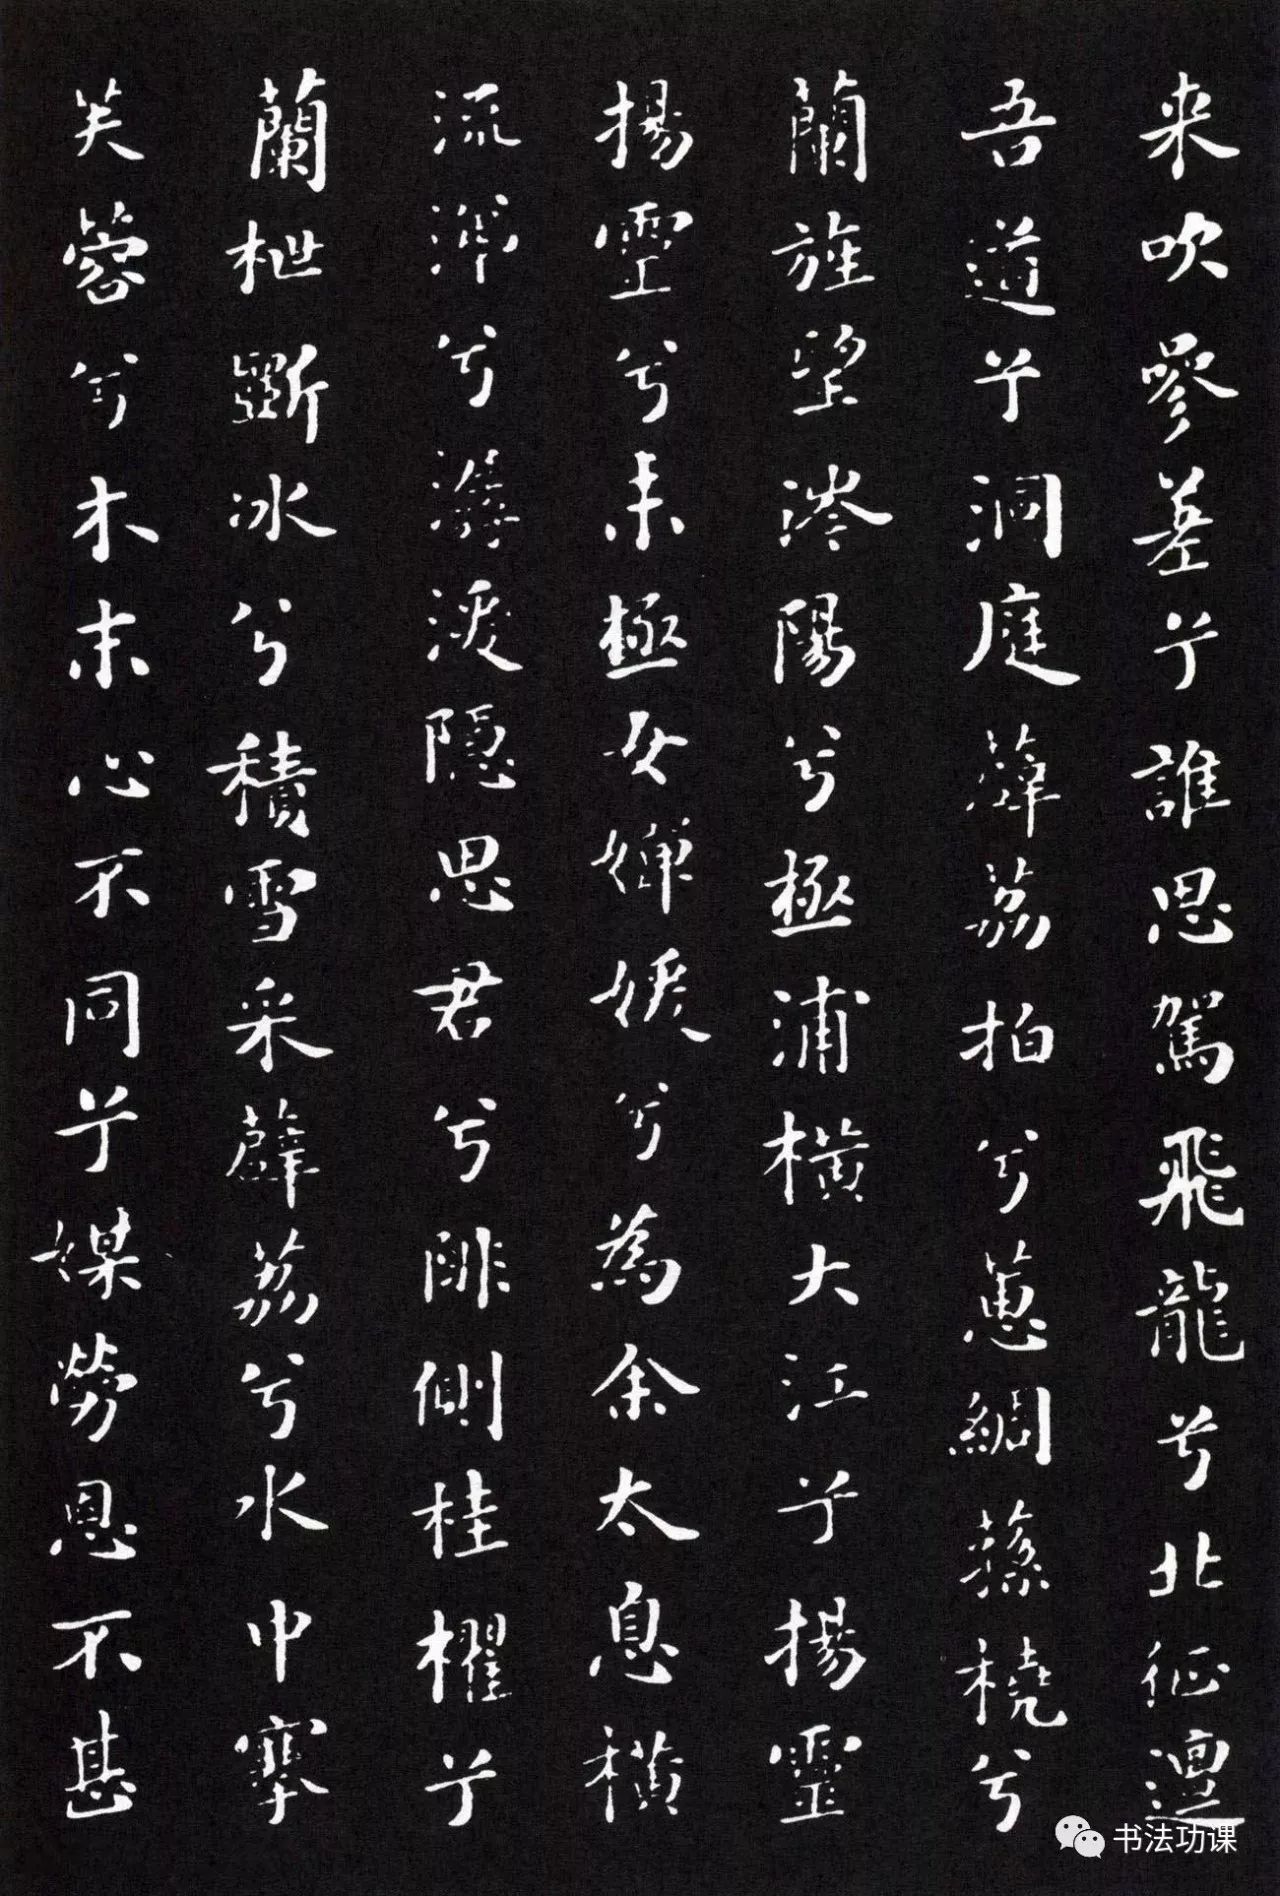 来吹參差兮誰思駕飛龍兮北征邅
吾道兮洞庭薜荔拍兮蕙綢蓀橈兮
蘭旌望涔陽兮極浦橫大江兮揚靈
揚靈兮未極女嬋媛兮為余太息橫
流涕兮潺湲隱思君兮陫側桂櫂兮
蘭枻斲冰兮積雪采薜荔兮水中搴
芙蓉兮木末心不同兮媒勞恩不甚
书法功课